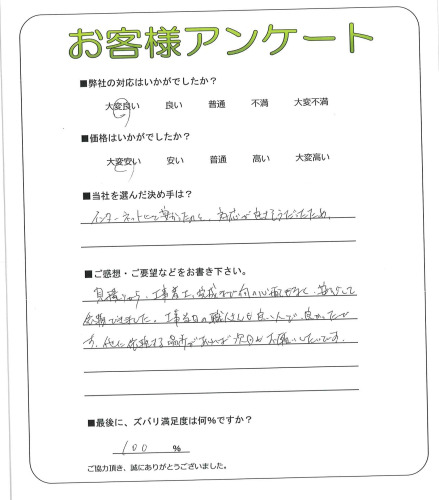 お客様アンケート
■弊社の対応はいかがでしたか?
大変良い 良い 普通 不満 大変不満
■価格はいかがでしたか?
大変安い 安い 普通 高い 大変高い
■当社を選んだ決め手は?
インターネットにて 安かったのと、対応が良さそうだったため。
■ご感想・ご要望などをお書き下さい。
見積りから、工事着工、完成まで何の心配もなく、安心して
依頼できました。工事当日の職人さんも良い人で、良かったで
す。他に依頼する箇所があれば次回もお願いしたいです。
■最後に、ズバリ満足度は何%ですか?
100 %
ご協力頂き、誠にありがとうございました。